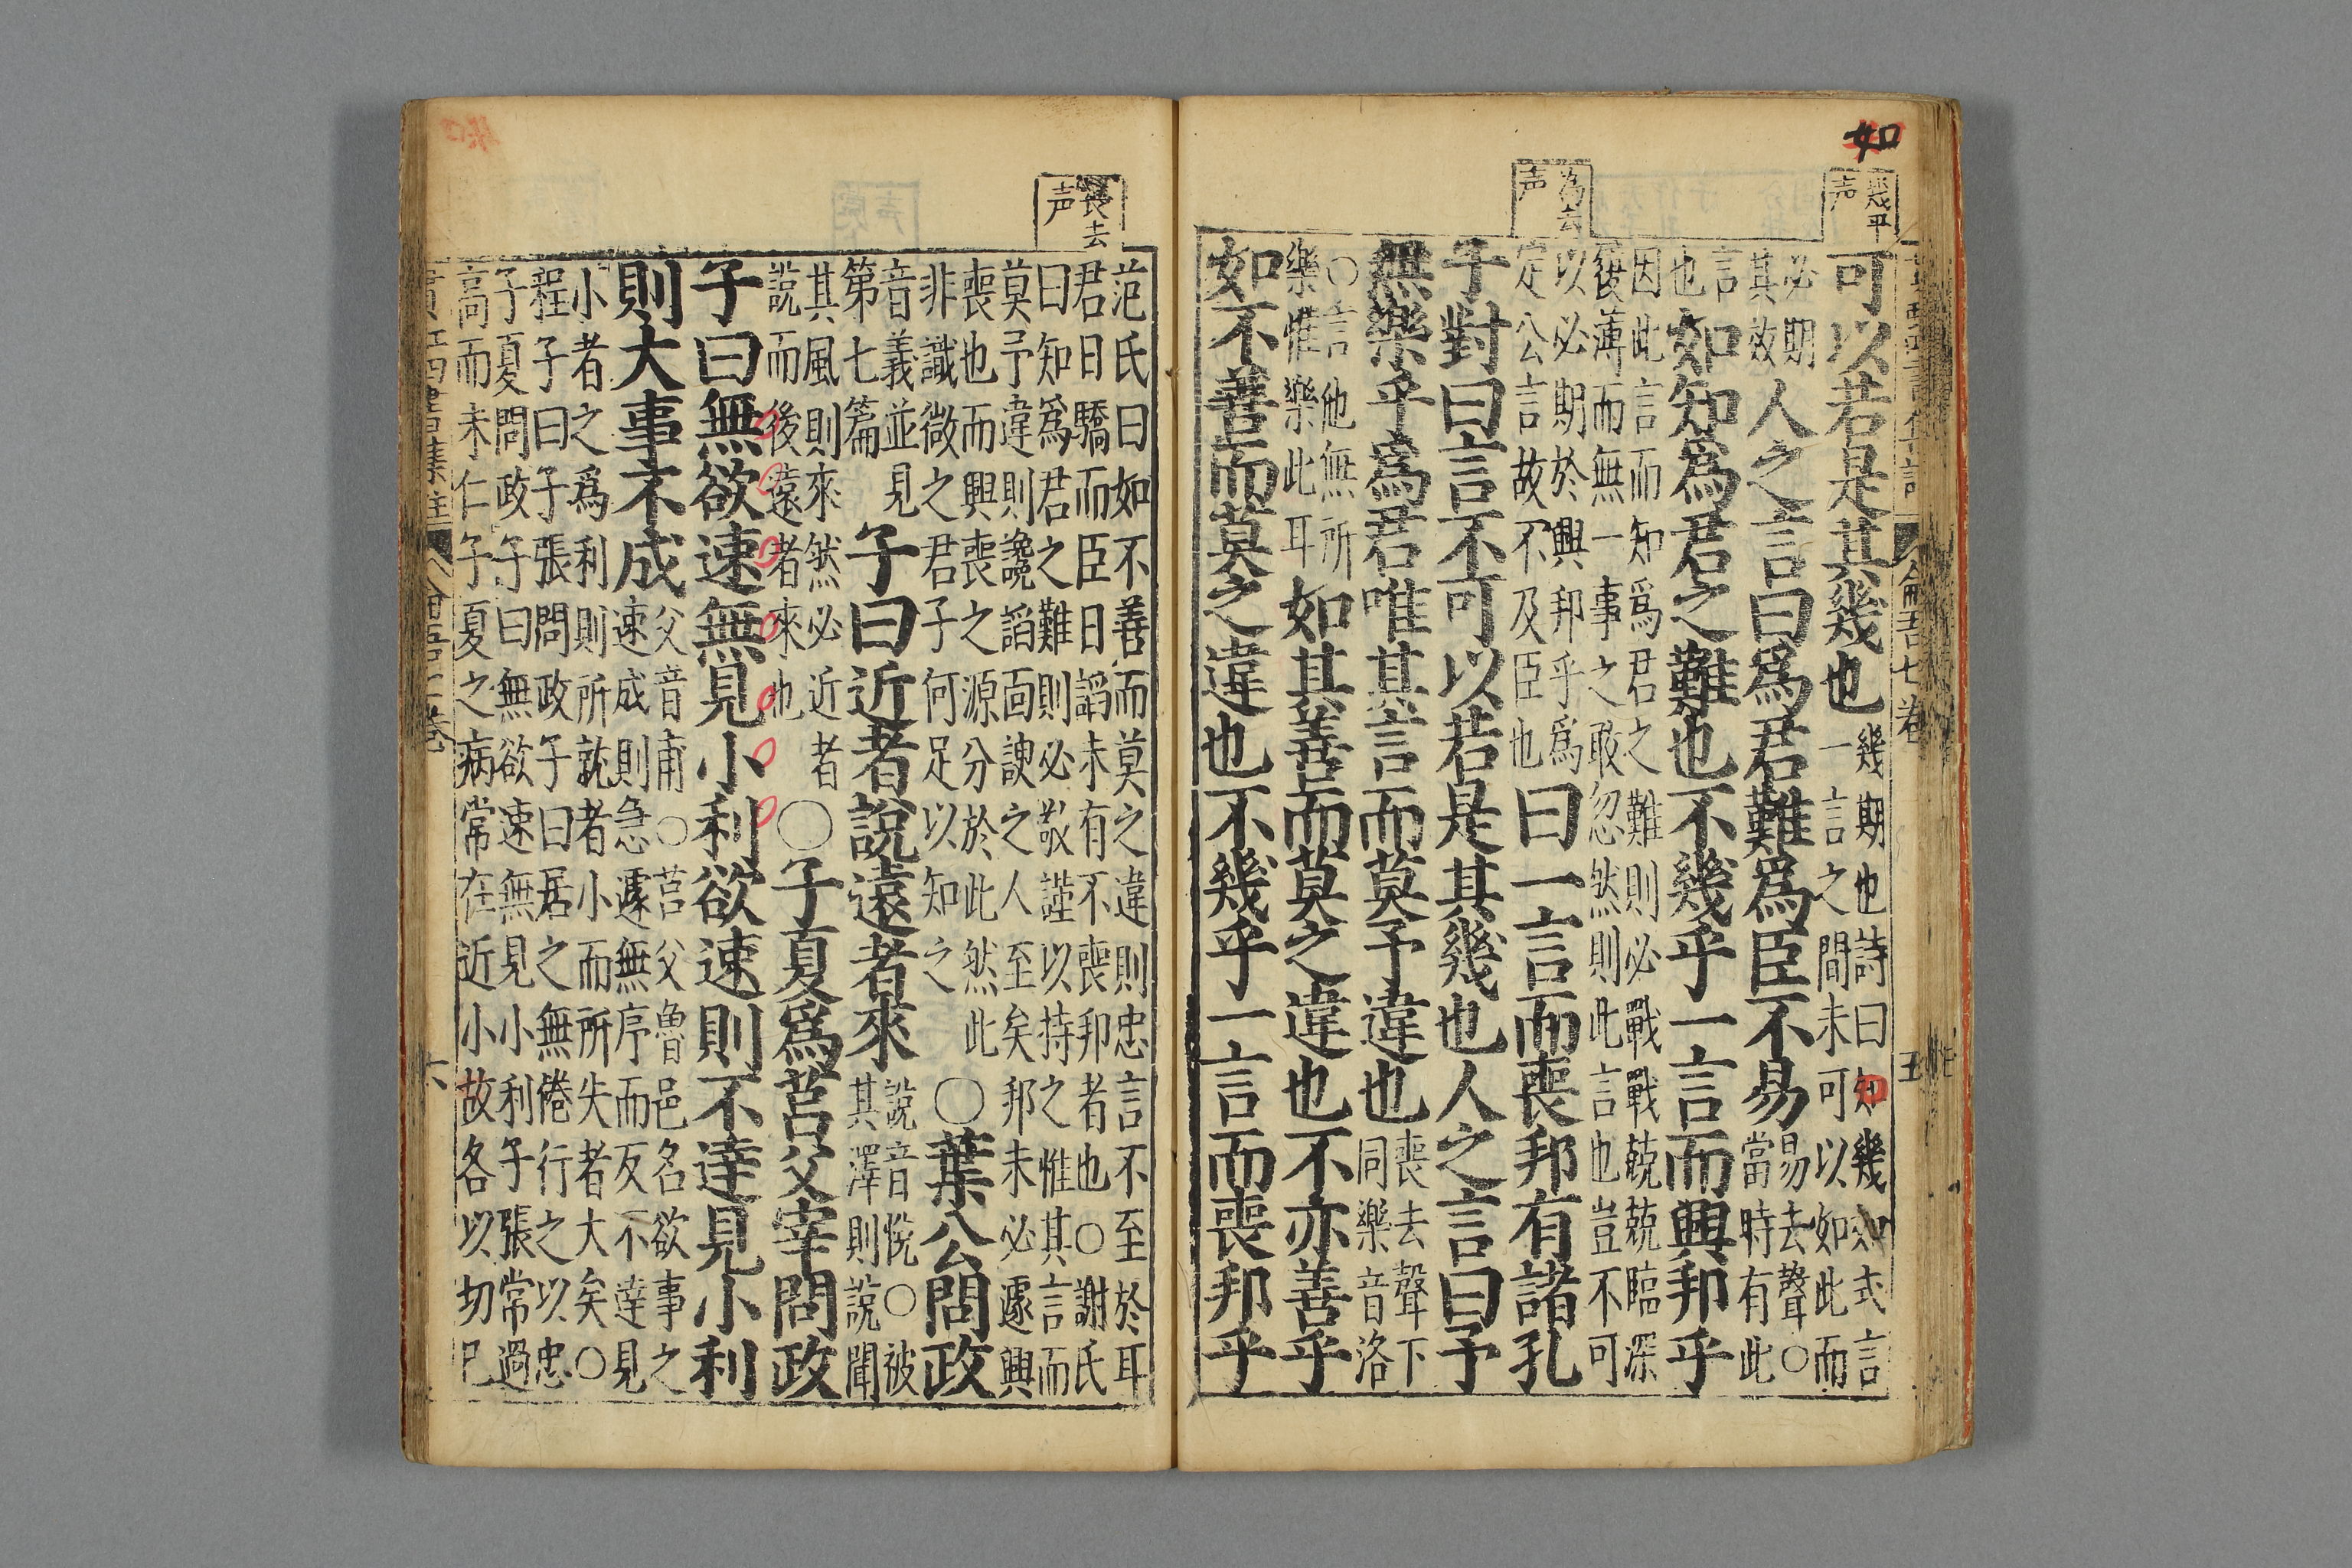 如
幾平
声
為去
声
可以若是其幾也幾期也詩曰如幾如式言
一言之間未可以如此而
必期
其效人之言曰爲君難爲臣不易易去聲○
當時有此
言
也如知爲君之難也不幾乎一言而興邦乎
因此言而知爲君之難則必戰戰兢兢臨深
履薄而無一事之敢忽然則此言也豈不可
以必期於興邦乎爲
定公言故不及臣也曰一言而喪邦有諸孔
子對曰言不可以若是其幾也人之言曰予
無樂乎爲君唯其言而莫予違也喪去聲下
同樂音洛
○言他無所
樂惟樂此耳如其善而莫之違也不亦善乎
如不善而莫之違也不幾乎一言而喪邦乎
論語七卷
五
喪去
声
范氏曰如不善而莫之違則忠言不至於耳
君日驕而臣日謟未有不喪邦者也○謝氏
曰知爲君之難則必敬謹以持之惟其言而
莫予違則讒謟面諛之人至矣邦未必遽興
喪也而興喪之源分於此然此
非識微之君子何足以知之○葉公問政
音義並見
第七篇子曰近者說遠者來說音悅○被
其澤則說聞
其風則來然必近者
說而後遠者來也○子夏爲莒父宰問政
子曰無欲速無見小利欲速則不達見小利
則大事不成父音甫○莒父魯邑名欲事之
速成則急遽無序而反不達見
小者之爲利則所就者小而所失者大矣○
程子曰子張問政子曰居之無倦行之以忠
子夏問政子曰無欲速無見小利子張常過
高而未仁子夏之病常在近小故各以切己
六